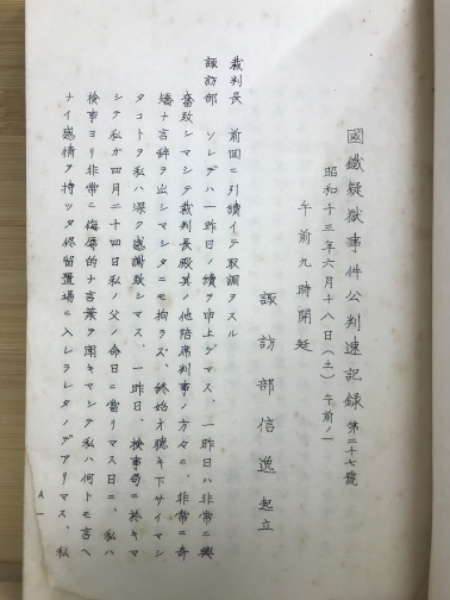 國鐵疑獄事件公判速記録 第二十七號
昭和十三年六月十八日(土) 午前ノ一
午前九時開廷
諏訪部信逸 起立
裁判長 前回ニ引續イテ取調ヲスル
諏訪部 ソレデハ一昨日ノ續ヲ申上ゲマス、一昨日ハ非常ニ興
奮致シマシテ裁判長殿其ノ他陪席判事ノ方々ニ、非常ニ奇
矯ナ言辞ヲ出シマシタニモ拘ラズ、終始オ聴キ下サイマシ
タコトヲ私ハ深ク感謝致シマス、一昨日、検事局ニ於キマ
シテ私ガ四月二十四日私ノ父ノ命日ニ當リマス日ニ、私ハ
検事ヨリ非常ニ侮辱的ナ言葉ヲ聞キマシテ私ハ何トモ言ヘ
ナイ感情ヲ持ッタ終留置場ニ入レラレタノデアリマス、私
A 一